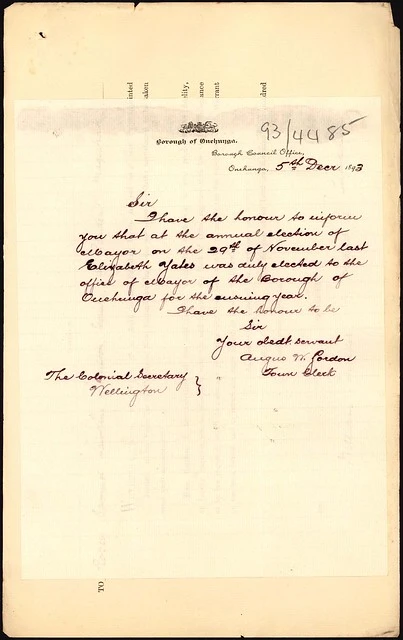 inted
aken
ality,
ance
rrant
dred
93/4485
Borough of Onehunga.
Borough Council Office,
Onehunga, 5th Decr 1893
Sir
I have the honour to inform
you that at the annual election of
Mayor on the 29th of November last
Elizabeth Yates was duly elected to the
office of Mayor of the Borough of
Onehunga for the ensuing year.
I have the honour to be
Sir
Your obedt servant
Angus W. Gordon
Town Clerk
The Colonial Secretary
Wellington
TO